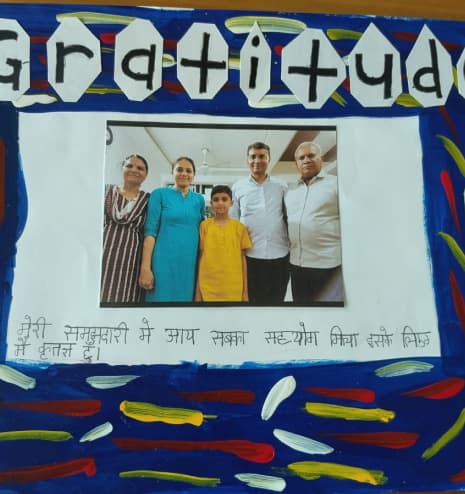 Gratitud
मेरी समझदारी मे आय सबका सहयोग मिला इसके लिए
मैं कृतज्ञ हूँ।